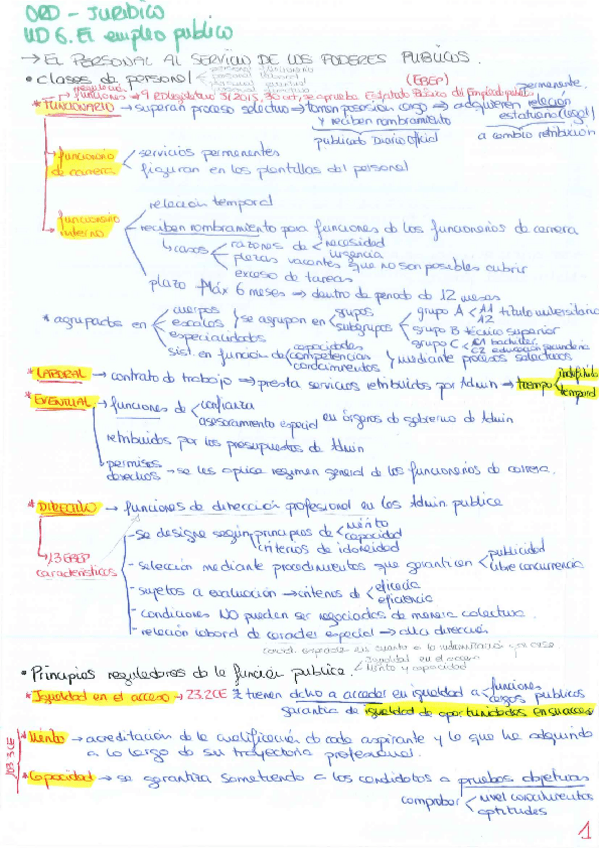 ORD - JURÍDICO
UD 6. El empleo publico
→ EL PERSONAL AL SERVICIO DE LOS PODERES PUBLICOS.
• clases de personal
(EBEP)
permanente
RDLegislativo 5/2015, 30 oct, se aprueba Estatuto Básico del Empleado público
* FUNCIONARIO → superan proceso selectivo → toman posesión cargo → adquieren relación
y reciben nombramiento
estatutaria (legal)
publicado Diario Oficial
a cambio retribución
funcionario de carrera
servicios permanentes
figuran en las plantillas del personal
funcionario interino
relación temporal
reciben nombramiento para funciones de los funcionarios de carrera
↳ casos
razones de necesidad
urgencia
plazas vacantes que no son posibles cubrir
exceso de tareas
plazo Máx 6 meses → dentro de periodo de 12 meses
* agrupados en
cuerpos
escalas
especialidades
y se agrupan en
grupos
subgrupos
grupo A A1 A2 título universitario
grupo B técnico superior
grupo C C1 bachiller
C2 educación secundaria
sist. en función de
capacidades
competencias
conocimientos
y mediante procesos selectivos
* LABORAL → contrato de trabajo → presta servicios retribuidos por Admin → tiempo indefinido
temporal
* EVENTUAL → funciones de confianza
asesoramiento especial en órganos de gobierno de Admin
retribuidos por los presupuestos de Admin
permisos
derechos → se les aplica regimen general de los funcionarios de carrera.
* DIRECTIVO → funciones de dirección profesional en las Admin publica
13 EBEP
características
- se designe según principios de mérito
capacidad
criterios de idoneidad
- selección mediante procedimientos que garanticen publicidad
libre concurrencia
- sujetos a evaluación → criterios de eficacia
eficiencia
- condiciones NO pueden ser negociadas de manera colectiva.
- relación laboral de caracter especial → alta dirección
• Principios reguladores de la función publica.
Igualdad en el acceso
Mérito y capacidad
* Igualdad en el acceso → 23.2CE tienen dcho a acceder en igualdad a funciones
cargos públicos
garantía de igualdad de oportunidades en su acceso
103.3CE
* Mérito → acreditación de la cualificación de cada aspirante y lo que ha adquirido
a lo largo de su trayectoria profesional.
* Capacidad → se garantiza sometiendo a los candidatos a pruebas objetivas
comprobar nivel conocimientos
aptitudes
1